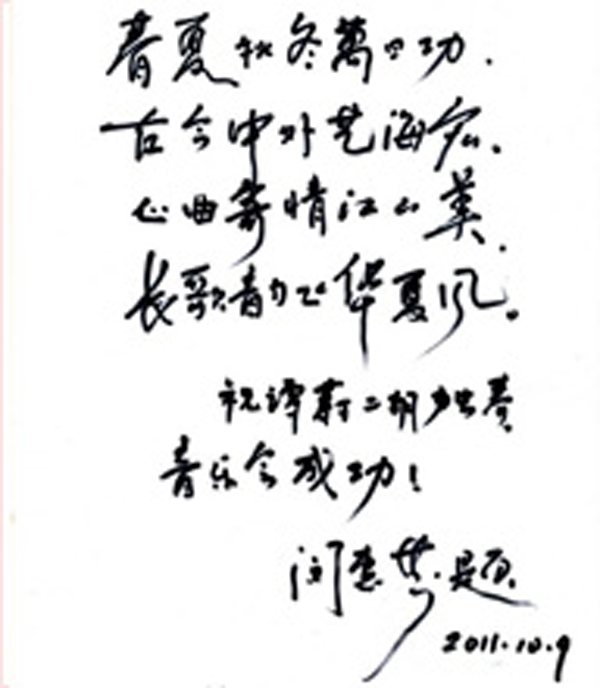 春夏秋冬萬日功.
古今中外艺海宏.
心曲寄情江山
长歌韵飞华夏风。
祝谭蔚二胡独奏
音乐会成功!
闵惠芬题
2011.10.9